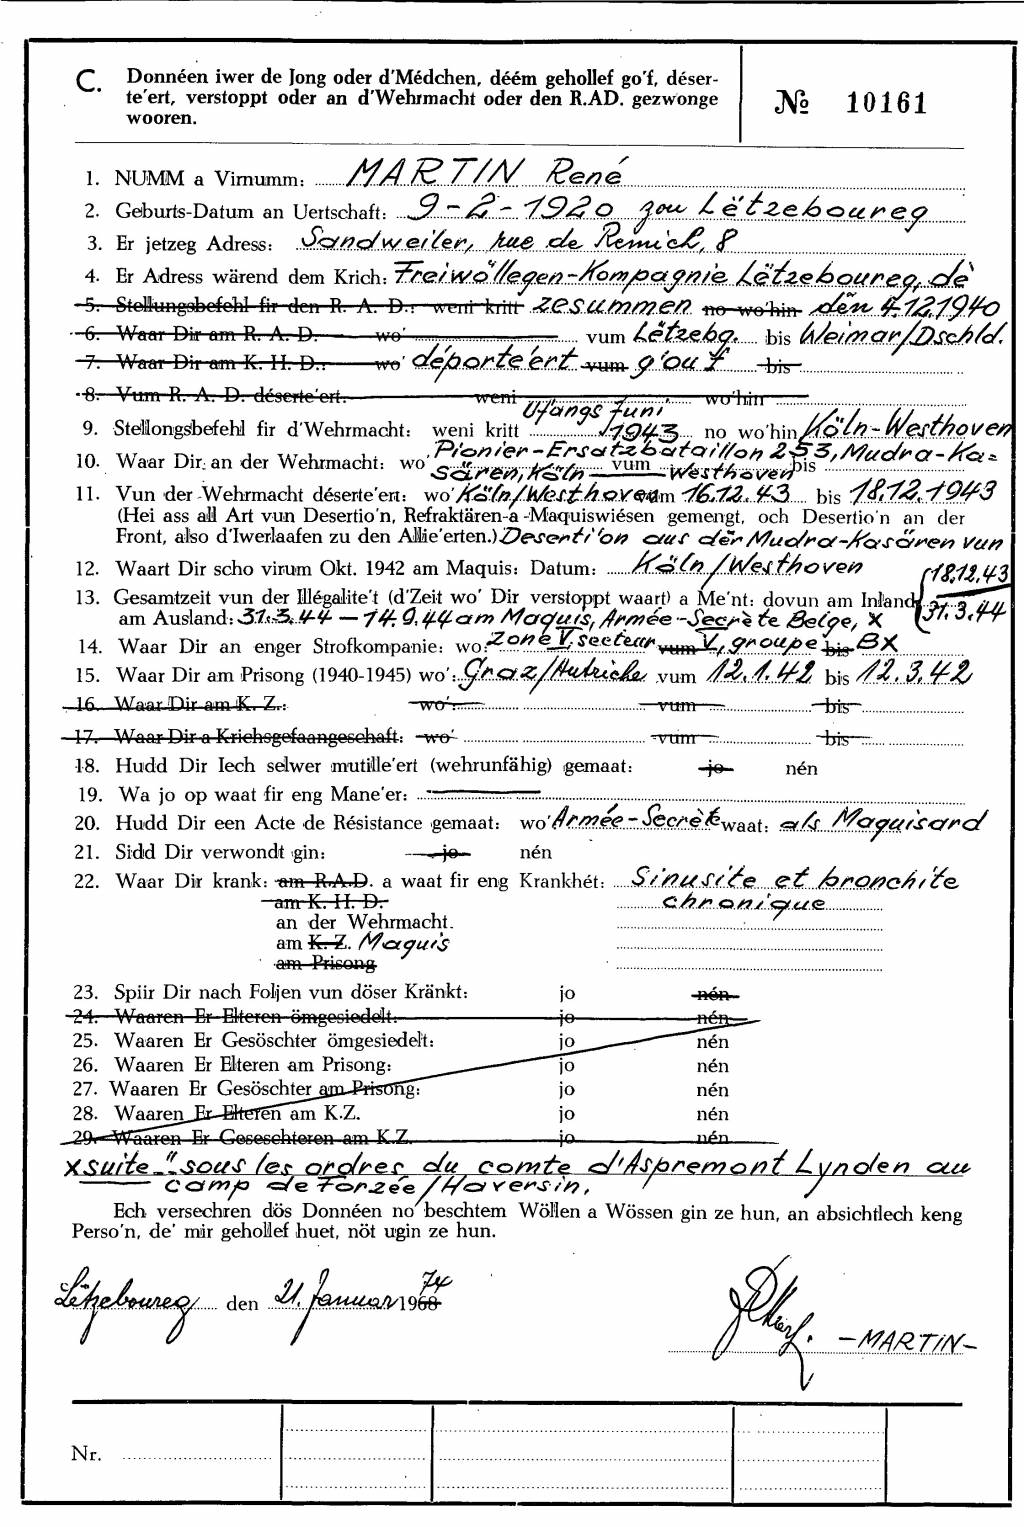 C. Donnéen iwer de Jong oder d'Médchen, déém gehollef go'f, déser-
te'ert, verstoppt oder an d'Wehrmacht oder den R.AD. gezwonge
wooren.
№ 10161
1. NUMM a Virnumm: MARTIN René
2. Geburts-Datum an Uertschaft: 9-2-1920 zou Lëtzeboureg
3. Er jetzeg Adress: Sandweiler, rue de Remich, 8
4. Er Adress wärend dem Krich: Freiwöllegen-Kompagnie Lëtzeboureg, dé
5. Stellungsbefehl fir den R. A. D.: weni kritt zesummen no wo'hin dën 4.12.1940
6. Waar Dir am R. A. D. wo' vum Lëtzebg. bis Weimar/Dschld.
7. Waar Dir am K. H. D.: wo' déporte'ert vum g'ouf bis
8. Vum R. A. D. déserte'ert. weni wo'hin
Ufangs Juni
9. Stellongsbefehl fir d'Wehrmacht: weni kritt 1943 no wo'hin Köln-Westhoven
10. Waar Dir an der Wehrmacht: wo' Pionier-Ersatzbataillon 253, Mudra-Ka=
sären, Köln vum Westhoven bis
11. Vun der Wehrmacht déserte'ert: wo' Köln/Westhoven vum 16.12.43 bis 18.12.1943
(Hei ass all Art vun Desertio'n, Refraktären-a-Maquiswiésen gemengt, och Desertio'n an der
Front, also d'Iwerlaafen zu den Allie'erten.) Deserti'on aus dër Mudra-Kasären vun
12. Waart Dir scho virum Okt. 1942 am Maquis: Datum: Köln/Westhoven 18.12.43
13. Gesamtzeit vun der Illégalite't (d'Zeit wo' Dir verstoppt waart) a Me'nt: dovun am Inland
am Ausland: 31.3.44 - 14.9.44 am Maquis, Armée-Secrète Belge, x 31.3.44
14. Waar Dir an enger Strofkompanie: wo: Zone V, secteur vum V, groupe bis BX
15. Waar Dir am Prisong (1940-1945) wo': Graz/Autriche vum 12.1.42 bis 12.3.42
16. Waar Dir am K. Z.: wo': vum bis
17. Waar Dir a Krichsgefaangeschaft: wo' vum bis
18. Hudd Dir Iech selwer mutille'ert (wehrunfähig) gemaat: jo nén
19. Wa jo op waat fir eng Mane'er:
20. Hudd Dir een Acte de Résistance gemaat: wo' Armée-Secrète waat: als Maquisard
21. Sidd Dir verwondt gin: jo nén
22. Waar Dir krank: am R.A.D. a waat fir eng Krankhét: Sinusite et bronchite
am K. H. D. chronique
an der Wehrmacht.
am K. Z. Maquis
am Prisong
23. Spiir Dir nach Foljen vun döser Kränkt: jo nén
24. Waaren Er Elteren ömgesiedelt: jo nén
25. Waaren Er Gesöschter ömgesiedelt: jo nén
26. Waaren Er Elteren am Prisong: jo nén
27. Waaren Er Gesöschter am Prisong: jo nén
28. Waaren Er Elteren am K.Z. jo nén
29. Waaren Er Geseschteren am K.Z. jo nén
x suite " sous les ordres du comte d'Aspremont Lynden au
camp de Forzée/Haversin.
Ech versechren dös Donnéen no beschtem Wöllen a Wössen gin ze hun, an absichtlech keng
Perso'n, de' mir gehollef huet, nöt ugin ze hun.
74
Lëtzeboureg den 21. Januar 1968
-MARTIN-
Nr.